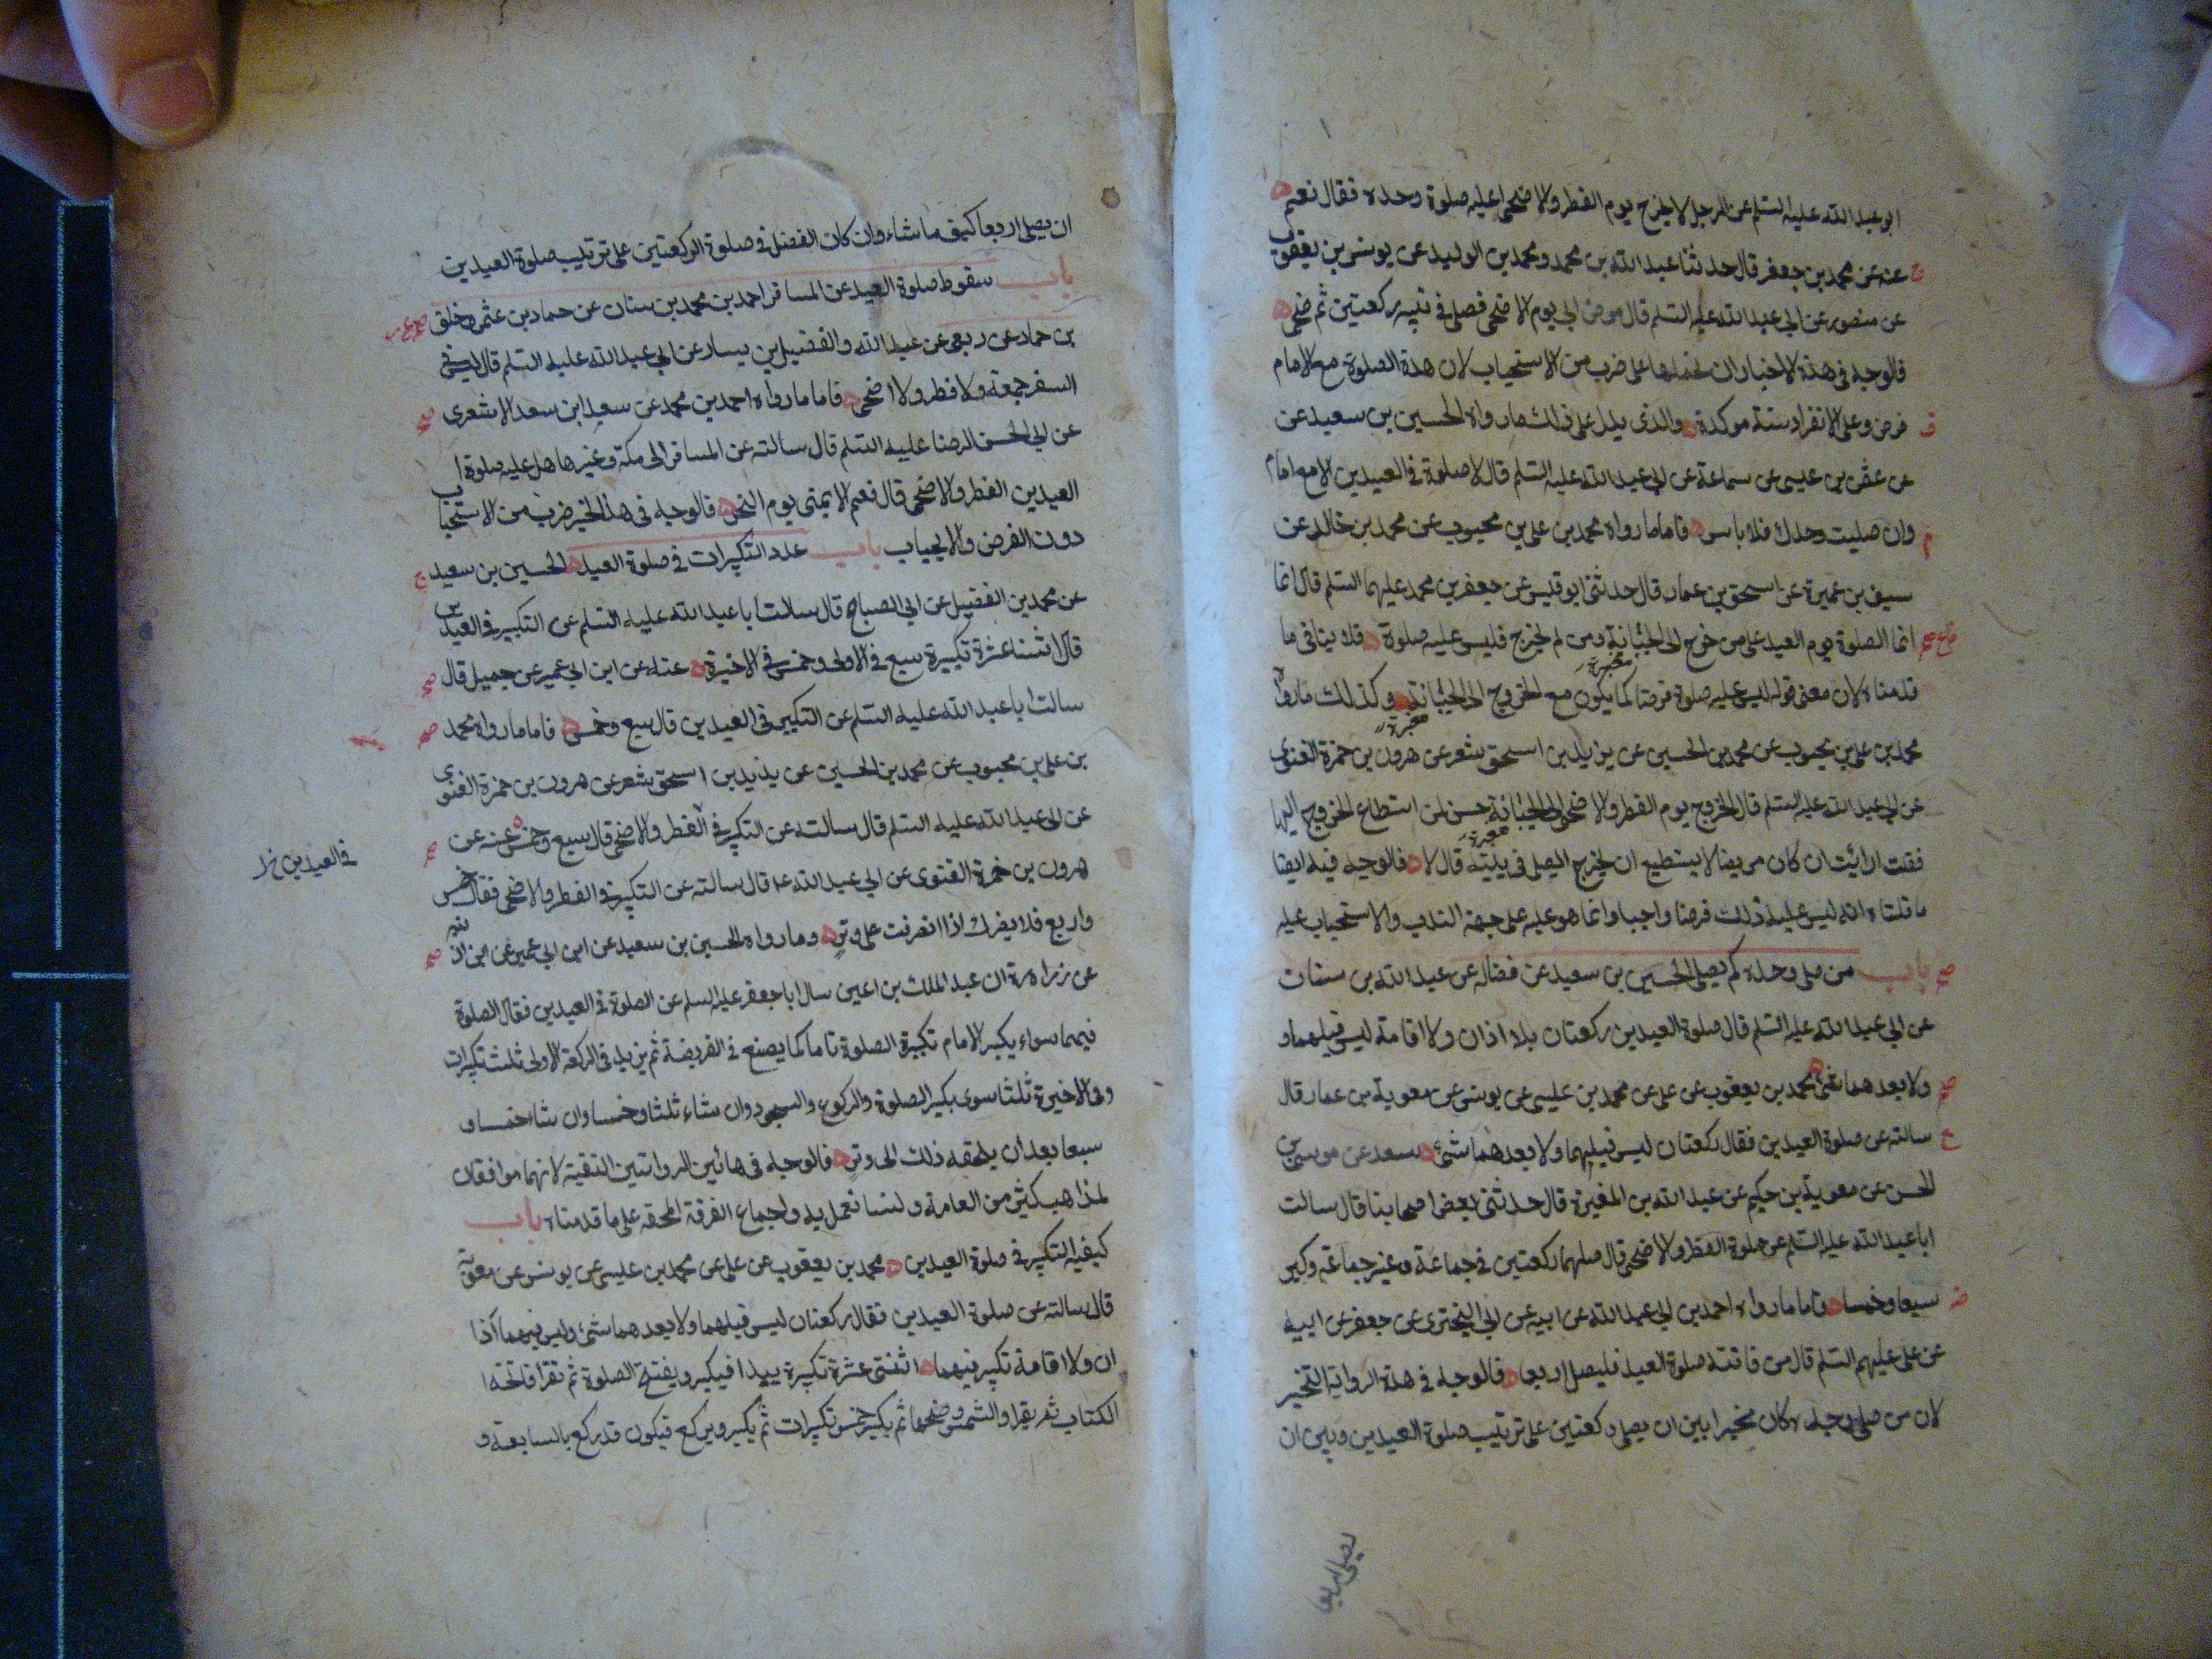 ابو عبد الله عليه السلم عن الرجل لا يخرج يوم الفطر والاضحى اعليه صلوة وحده فقال نعم
عنه عن محمد بن جعفر قال حدثنا عبد الله بن محمد ومحمد بن الوليد عن يونس بن يعقوب
عن منصور عن ابي عبد الله عليه السلم قال مرض ابي يوم الاضحى فصلى في بيته ركعتين ثم ضحى
فالوجه في هذه الاخبار ان نحملها على ضرب من الاستحباب لان هذه الصلوة مع الامام
فرض وعلى الانفراد سنة موكدة والذى يدل على ذلك ما رواه الحسين بن سعيد عن
عن عثمن بن عيسى عن سماعة عن ابي عبد الله عليه السلم قال لا صلوة في العيدين الا مع امام
وان صليت وحدك فلا باس فاما ما رواه محمد بن على بن محبوب عن محمد بن خالد عن
سيف بن عميرة عن اسحق بن عمار قال حدثنى ابو قيس عن جعفر بن محمد عليهما السلم قال انما
انما الصلوة يوم العيد على من خرج الى الجبانة ومن لم يخرج فليس عليه صلوة فلا ينافى ما
قدمناه لان معنى قوله ليس عليه صلوة فرضا كما يكون مع الخروج الى الجبانة وكذلك ما رواه
محمد بن على بن محبوب عن محمد بن الحسين عن يزيد بن اسحق شعر عن هرون بن حمزة الغنوى
عن ابي عبد الله عليه السلم قال الخروج يوم الفطر والاضحى الى الجبانة حسن لمن استطاع الخروج اليها
فقلت ارأيت ان كان مريضا لا يستطيع ان يخرج ايصلى في بيته قال لا فالوجه فيه ايضا
ما قلناه انه ليس عليه ذلك فرضا واجبا وانما هو عليه على جهة الندب والاستحباب عليه
باب من صلى وحده كم يصلى الحسين بن سعيد عن فضالة عن عبد الله بن سنان
عن ابي عبد الله عليه السلم قال صلوة العيدين ركعتان بلا اذان ولا اقامة ليس قبلهما و
ولا بعدهما شئ محمد بن يعقوب عن على عن محمد بن عيسى عن يونس عن معوية بن عمار قال
سالته عن صلوة العيدين فقال ركعتان ليس قبلهما ولا بعدهما شئ سعد عن موسى بن
الحسن عن معوية بن حكيم عن عبد الله بن المغيرة قال حدثنى بعض اصحابنا قال سالت
ابا عبد الله عليه السلم عن صلوة الفطر والاضحى قال صلهما ركعتين في جماعة وغير جماعة وكبر
سبعا وخمسا فاما ما رواه احمد بن ابي عبد الله عن ابيه عن ابي البخترى عن جعفر عن ابيه
عن على عليهم السلم قال من فاتته صلوة العيد فليصل اربعا فالوجه في هذه الرواية التخير
لان من صلى وحده كان مخيرا بين ان يصلى ركعتين على ترتيب صلوة العيدين وبين ان
يصلى اربعا
ان يصلى اربعا كيف ما شاء وان كان الفضل في صلوة الركعتين على ترتيب صلوة العيدين
باب سقوط صلوة العيد عن المسافر احمد بن محمد بن سنان عن حماد بن عثمن وخلف
بن حماد عن ربعى عن عبد الله والفضيل بن يسار عن ابي عبد الله عليه السلم قال ليس في
السفر جمعة ولا فطر ولا اضحى فاما ما رواه احمد بن محمد عن سعيد ابن سعد الاشعرى
عن ابي الحسن الرضا عليه السلم قال سالته عن المسافر الى مكة وغيرها هل عليه صلوة ا
العيدين الفطر والاضحى قال نعم الا بمنى يوم النحر فالوجه في هذا الخبر ضرب من الاستحباب
دون الفرض والايجاب باب عدد التكبيرات في صلوة العيد الحسين بن سعيد
عن محمد بن الفضيل عن ابي الصباح قال سالت ابا عبد الله عليه السلم عن التكبير في العيدين
قال اثنتا عشرة تكبيرة سبع في الاولى وخمس في الاخيرة عنه عن ابن ابي عمير عن جميل قال
سالت ابا عبد الله عليه السلم عن التكبير في العيدين قال سبع وخمس فاما ما رواه محمد
بن على بن محبوب عن محمد بن الحسين عن يزيد بن اسحق شعر عن هرون بن حمزة الغنوى
عن ابي عبد الله عليه السلم قال سالته عن التكبير في الفطر والاضحى قال سبع وخمس عنه عن
في العيدين
هرون بن حمزة الغنوى عن ابي عبد الله ع قال سالته عن التكبير في الفطر والاضحى فقال خمس
واربع فلا يضرك اذا انصرفت على وتر وما رواه الحسين بن سعيد عن ابن ابي عمير عن ابن اذينه
عن زرارة ان عبد الملك بن اعين سال ابا جعفر عليه السلم عن الصلوة في العيدين فقال الصلوة
فيهما سواء يكبر الامام تكبيرة الصلوة تاما كما يصنع في الفريضة ثم يزيد في الركعة الاولى ثلث تكبيرات
وفي الاخيرة ثلثا سوى تكبير الصلوة والركوع والسجود وان شاء ثلثا وخمسا وان شاء خمسا و
سبعا بعد ان يلحقه ذلك الى وتر فالوجه في هاتين الروايتين التقية لانهما موافقان
لمذاهب كثير من العامة ولسنا نعمل به واجماع الفرقة المحقه على ما قدمناه باب
كيفيه التكبير في صلوة العيدين محمد بن يعقوب عن على عن محمد بن عيسى عن يونس عن معوية
قال سالته عن صلوة العيدين فقال ركعتان ليس قبلهما ولا بعدهما شئ وليس فيهما اذا
ان ولا اقامة تكبر فيهما اثنتى عشرة تكبيرة يبدا فيكبر ويفتتح الصلوة ثم يقرا فاتحة ا
الكتاب ثم يقرا والشمس وضحها ثم يكبر خمس تكبيرات ثم يكبر ويركع فيكون قد ركع بالسابعة و